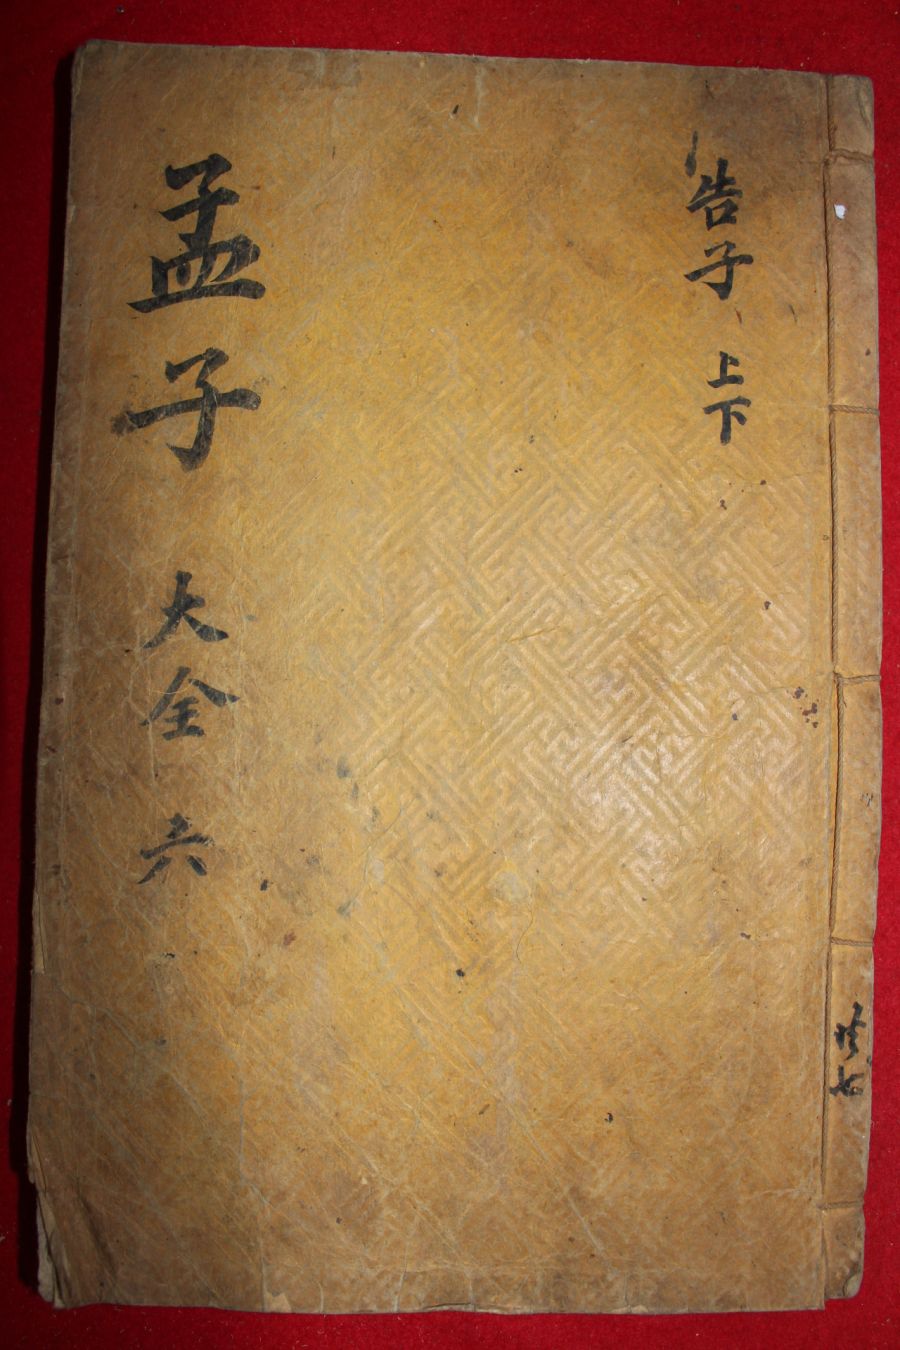 告子 上下
孟子 大全 六
共七